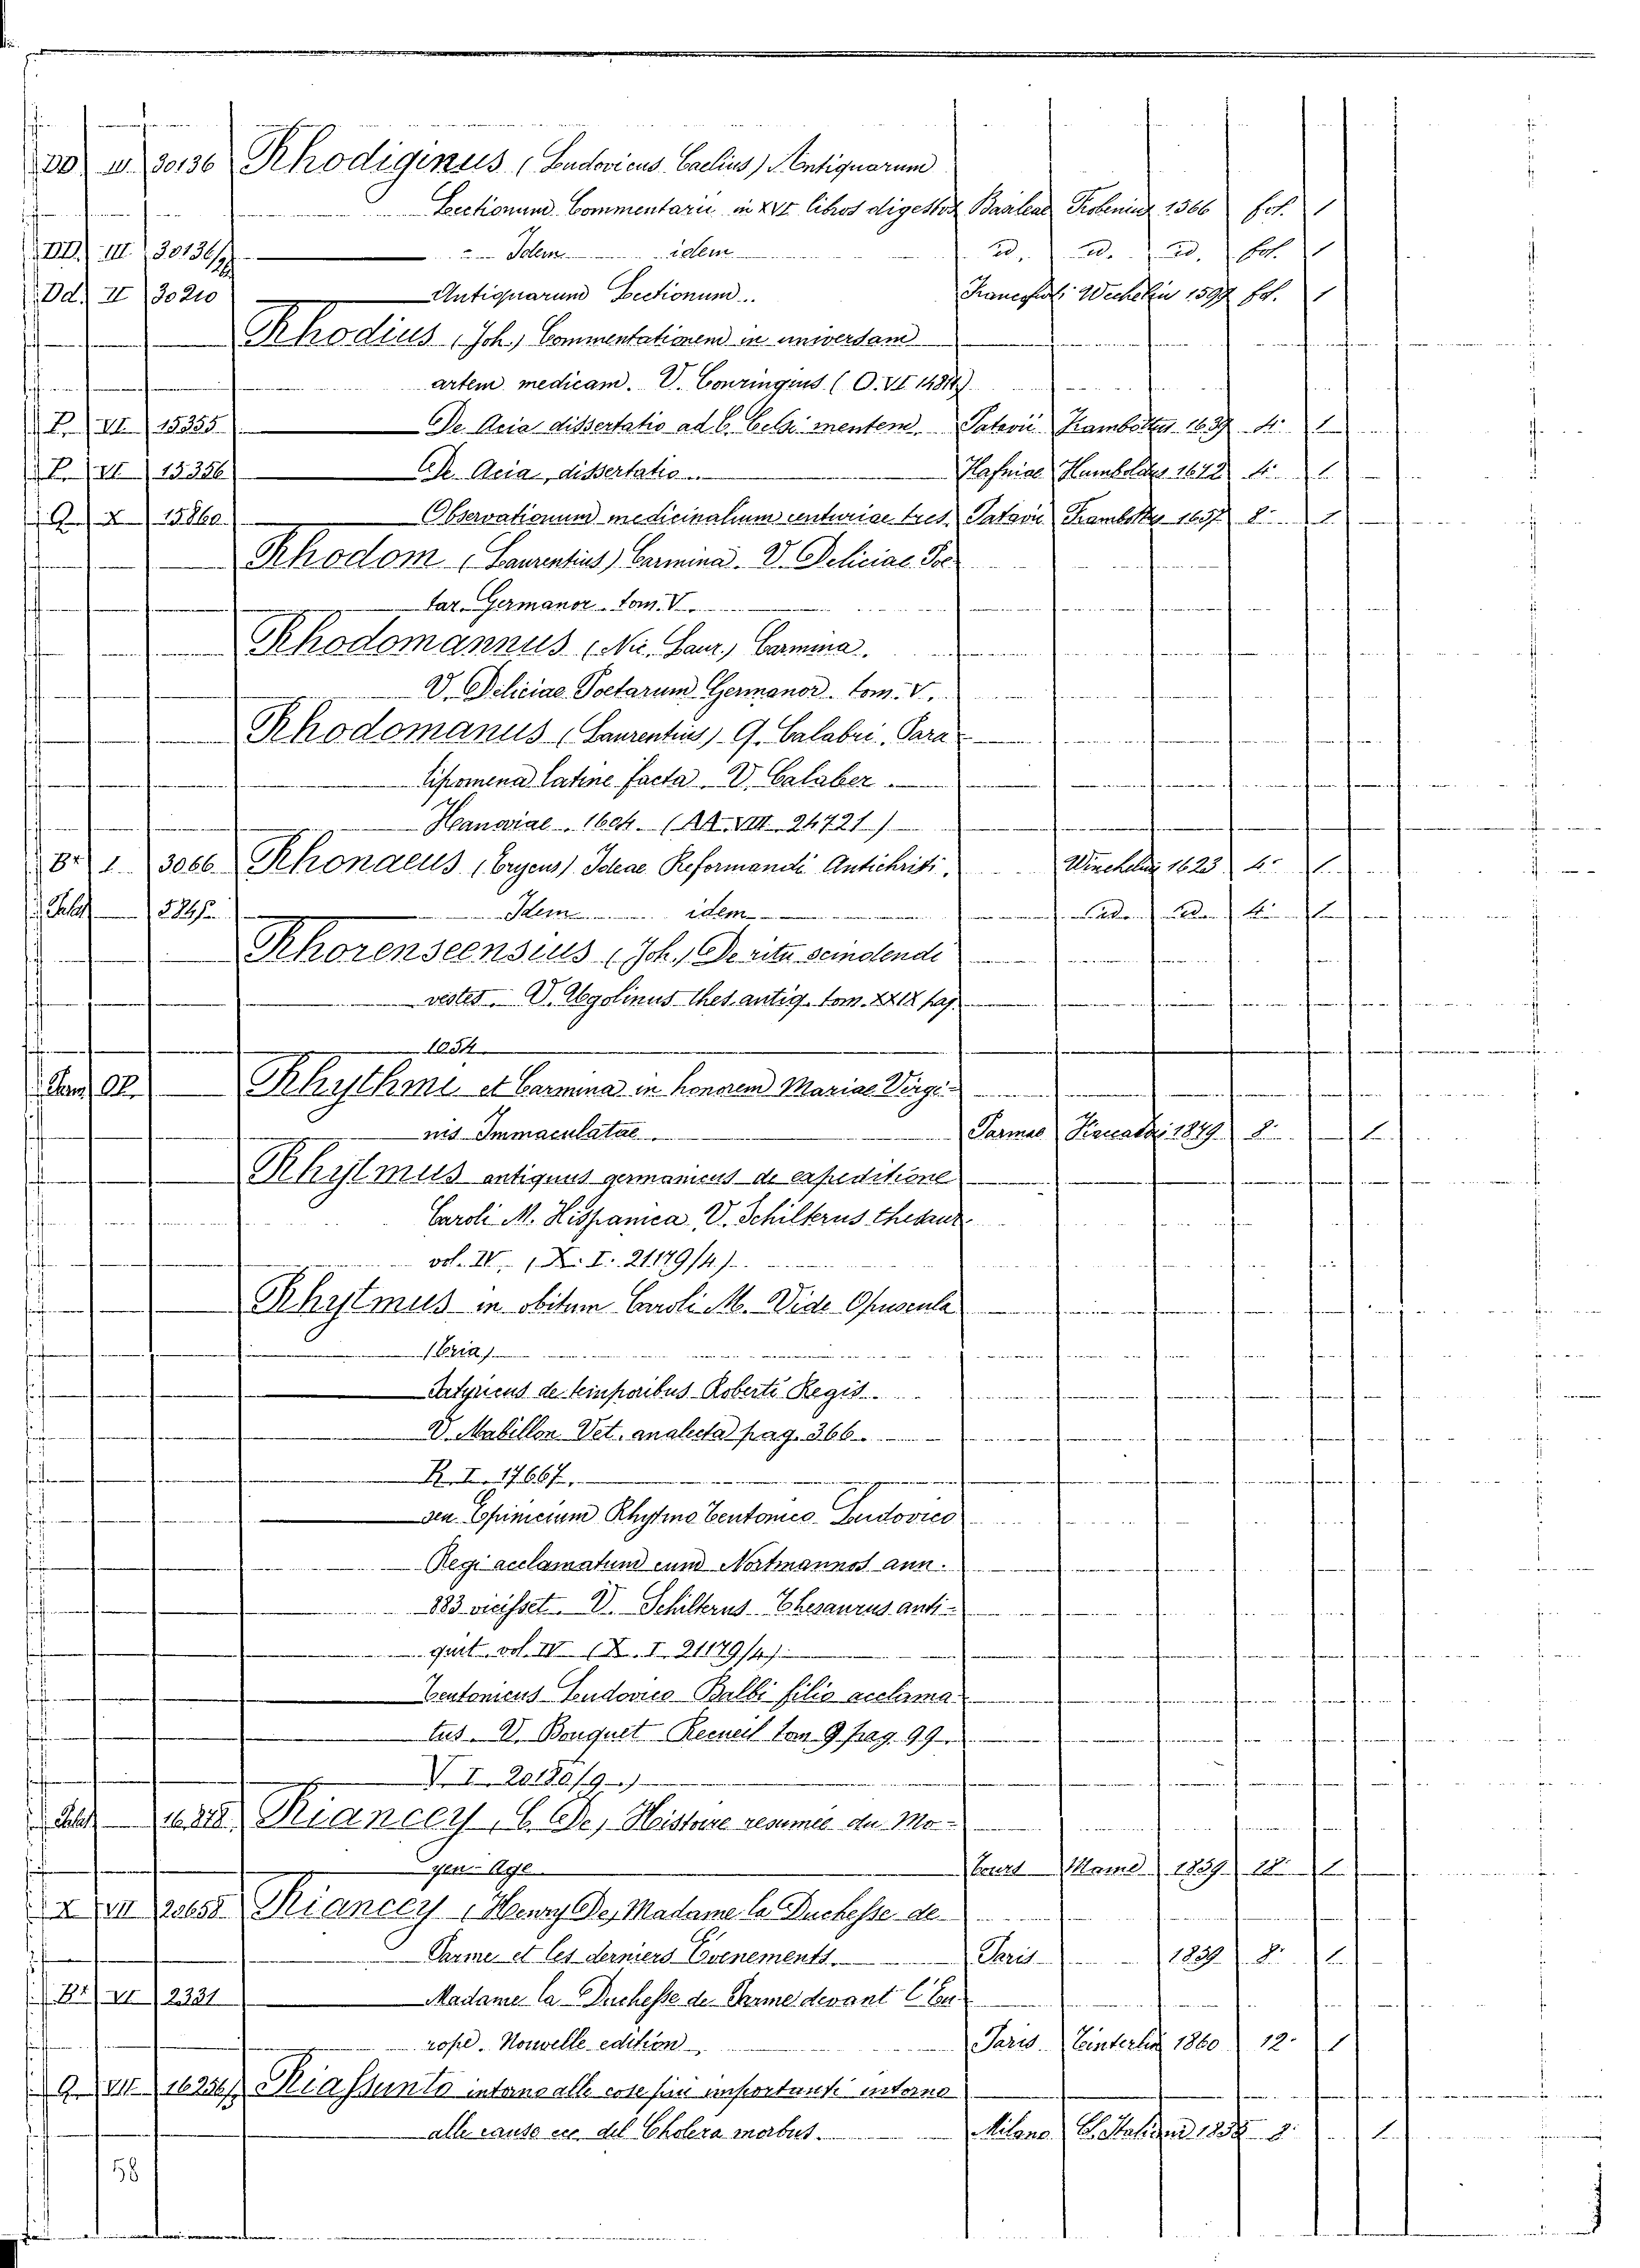 DD III 30136 Rhodiginus (Ludovicus Caelius) Antiquarum
Lectionum Commentarii in XVI libros digestos Basileae Frobenius 1566 fol. 1
DD. III 30136/2 - Idem idem id. id. id. fol. 1
Dd. II 30210 Antiquarum Lectionum. Francofurti Wechelin 1599 fol. 1
Rhodius (Joh.) Commentationem in universam
artem medicam. V. Conringius (O. VI 14814)
P. VII 15355 De Acia dissertatio ad C. Celsi mentem. Patavii Frambottus 1639 4. 1
P. VI 15356 De Acia, dissertatio. Hafniae 1672 4. 1
Q. X 15860 Observationum medicinalium centuriae tres. Patavii Frambottus 1657 8. 1
Rhodom (Laurentius) Carmina. V. Deliciae Poe
tar. Germanor. tom. V.
Rhodomannus (Nic. Laur.) Carmina.
V. Deliciae Poetarum Germanor. tom. V.
Rhodomanus (Laurentius) Q. Calabri, Para
lipomena latine facta. V. Calaber.
Hanoviae 1604. (AA. VIII. 24721)
Br I 3066 Rhonaeus (Crysus) Ideae Reformandi Antichristi. 1623 4. 1
5845 Idem idem 4. 1
Rhorenseensius (Joh.) De ritu scindendi
vestes. V. Ugolinus Thes. antiq. tom. XXIX pag.
1054
Rhythmi et Carmina in honorem Mariae Virgi-
nis Immaculatae. Parmae Fiaccadori 1879 8. 1
Rhytmus antiquus germanicus de expeditione
Caroli M. Hispanica, V. Schilterus thesaur
vol. IV, (X. I. 21179/4).
Rhytmus in obitum Caroli M. Vide Opuscula
(Tria)
Satyricus de temporibus Roberti Regis.
V. Mabillon Vet. analecta pag. 366.
R. I. 17667.
seu Epinicium Rhytmo Teutonico Ludovico
Regi acclamatum cum Nortmannos ann.
883 vicisset. V. Schilterus Thesaurus anti-
quit. vol. IV (X. I. 21179/4)
Teutonicus Ludovico Balbi filio acclama
tus. V. Bouquet Recueil tom 9 pag. 99.
V. I. 20180/9.)
Riancey, C. De, Histoire resumée du Mo-
yen-Age Tours Mame 1839 18. 1
X VII 20658 Riancey (Henry De) Madame la Duchesse de
Parme et les derniers Evenements. Paris 1839 8. 1
Br VI 2331 Madame la Duchesse de Parme devant l'Eu
rope. Nouvelle edition Paris. 1860 12. 1
Q. VII 16256/2 Riassunto intorno alle cose più importanti intorno
alle cause ecc. del Cholera morbus. Milano 8. 1
58